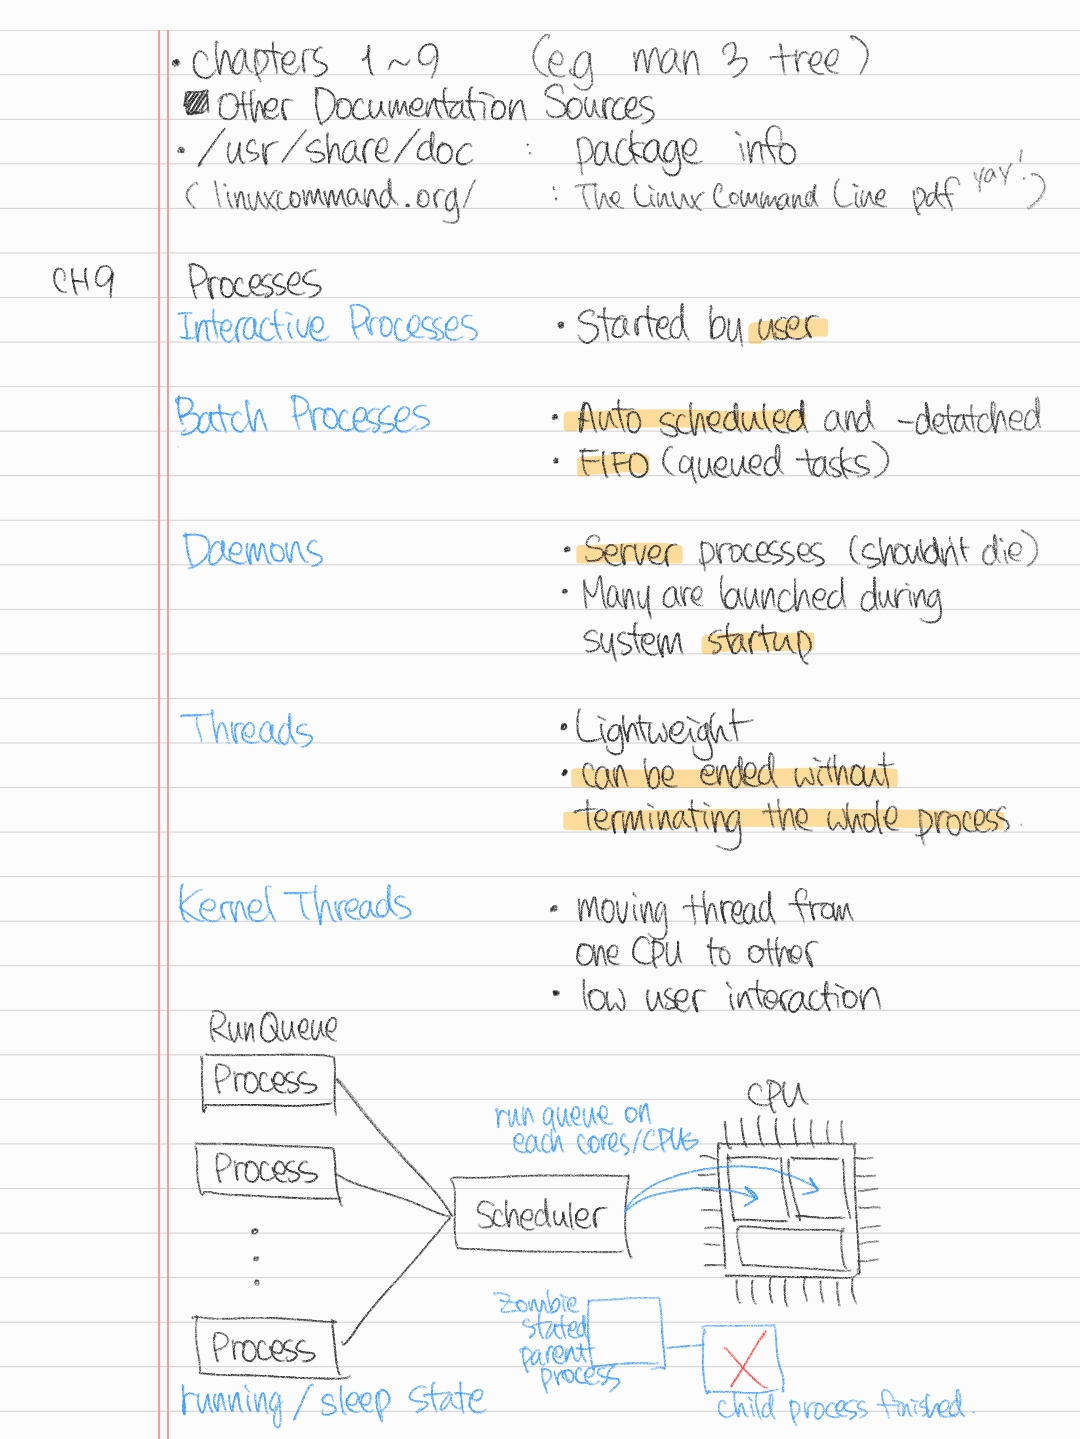 • chapters 1~9 (e.g man 3 tree)
Other Documentation Sources
• /usr/share/doc : package info
(linuxcommand.org/ : The Linux Command Line pdf yay!)
CH9 Processes
Interactive Processes • Started by user
Batch Processes • Auto scheduled and -detatched
• FIFO (queued tasks)
Daemons • Server processes (shouldn't die)
• Many are launched during
system startup
Threads • Lightweight
• can be ended without
terminating the whole process.
Kernel Threads • moving thread from
one CPU to other
• low user interaction
Run Queue
Process
Process
Process
running / sleep state
Scheduler
run queue on
each cores/CPUs
CPU
Zombie
stated
parent
process
child process finished.